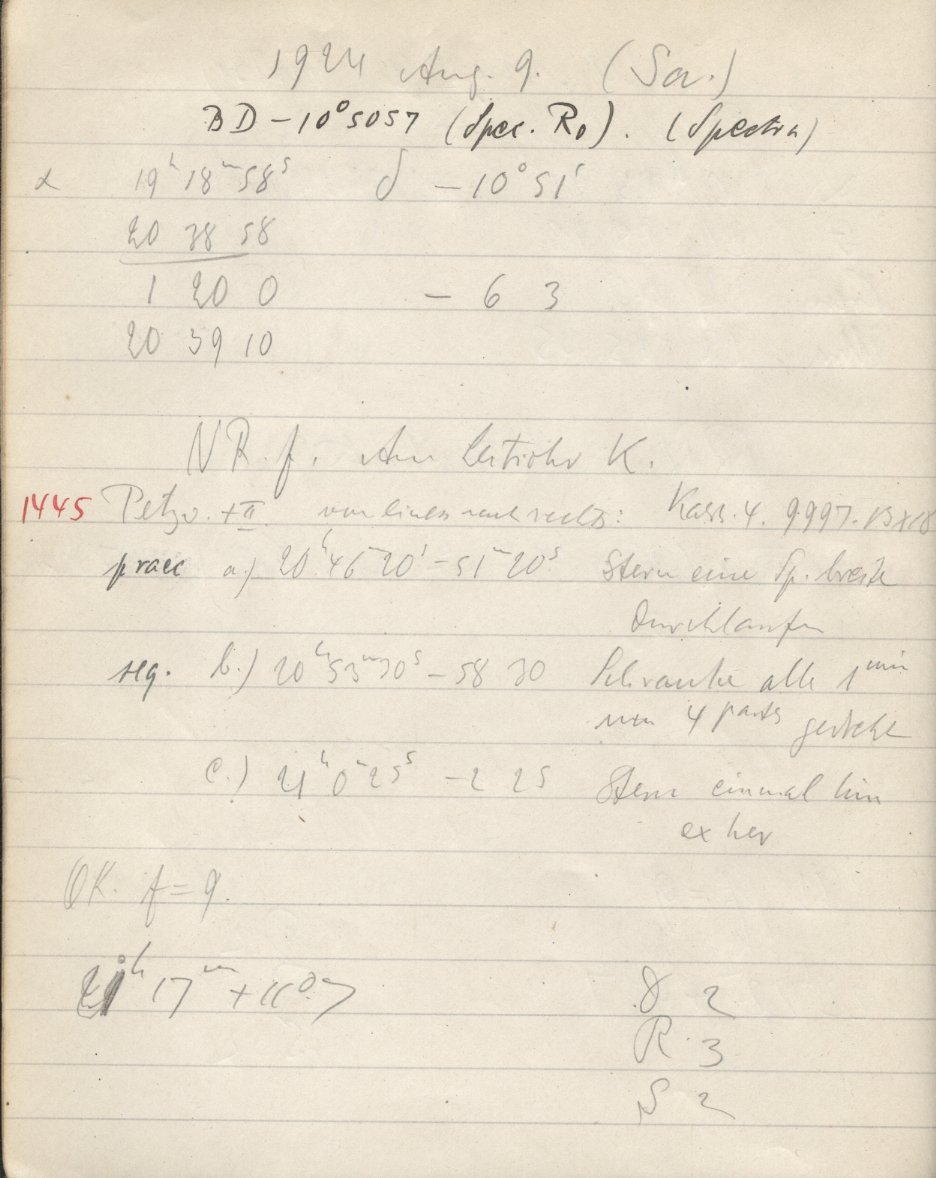 1924 Aug. 9. (Sa.)
BD -10°5057 (Spec. R0). (Spectra)
α 19ʰ 18ᵐ 58ˢ δ -10°51'
20 38 58
1 20 0 - 6 3
20 39 10
NR. f. Am Leitrohr K.
1445 Petzv. + II von links nach rechts: Kass. 4. 9997. 13x18
praec a.) 20ʰ 46ᵐ 20ˢ - 51ᵐ 20ˢ Stern eine Sp. breite
durchlaufen
seq. b.) 20ʰ 53ᵐ 30ˢ - 58 30 Schraube alle 1 ᵐⁱⁿ
um 4 parts gedreht
c.) 21ʰ 0ᵐ 25ˢ - 2 25 Stern einmal hin
et her
OK. f = 9.
21ʰ 17ᵐ + 11°.7
D 2
R. 3
S 2